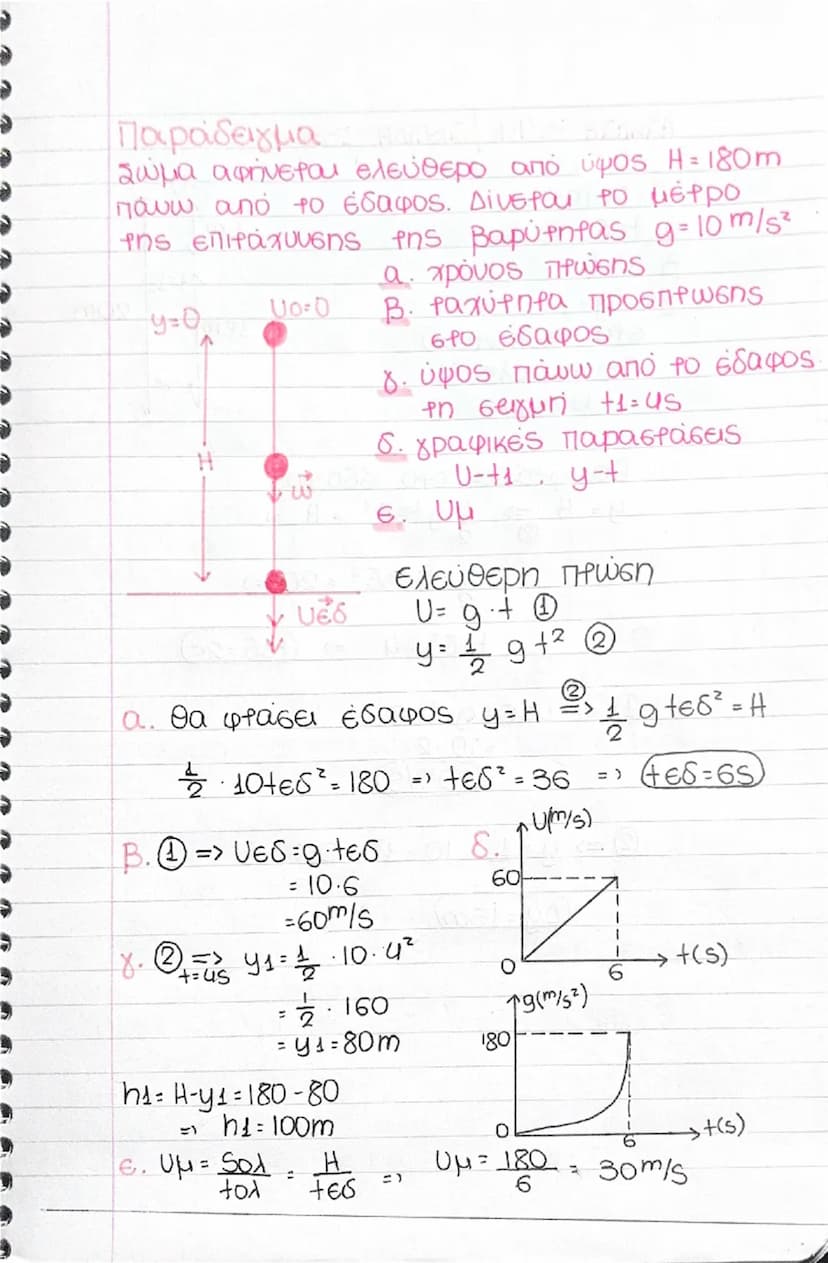 Παράδειγμα
Σώμα αφήνεται ελεύθερο από ύψος H = 180m
πάνω από το έδαφος. Δίνεται το μέτρο
της επιτάχυνσης της βαρύτητας g = 10 m/s²
α. χρόνος πτώσης
β. ταχύτητα πρόσπτωσης
στο έδαφος
γ. ύψος πάνω από το έδαφος
τη στιγμή t1 = 4s
δ. γραφικές παραστάσεις
U-t1 . y-t
ε. Uμ
y=0
U0=0
H
w⃗
U⃗εδ
ελεύθερη πτώση
U = g · t ①
y = 1/2 g t² ②
α. Θα φτάσει έδαφος y = H ②=> 1/2 g tεδ² = H
1/2 · 10tεδ² = 180 => tεδ² = 36 => tεδ = 6s
β. ① => Uεδ = g · tεδ
= 10 · 6
= 60 m/s
γ. ② => t=4s y1 = 1/2 · 10 · 4²
= 1/2 · 160
= y1 = 80m
h1 = H - y1 = 180 - 80
=> h1 = 100m
δ.
U(m/s)
60
0
6
t(s)
g(m/s²)
180
0
6
t(s)
ε. Uμ = Sολ/tολ = H/tεδ => Uμ = 180/6 = 30 m/s